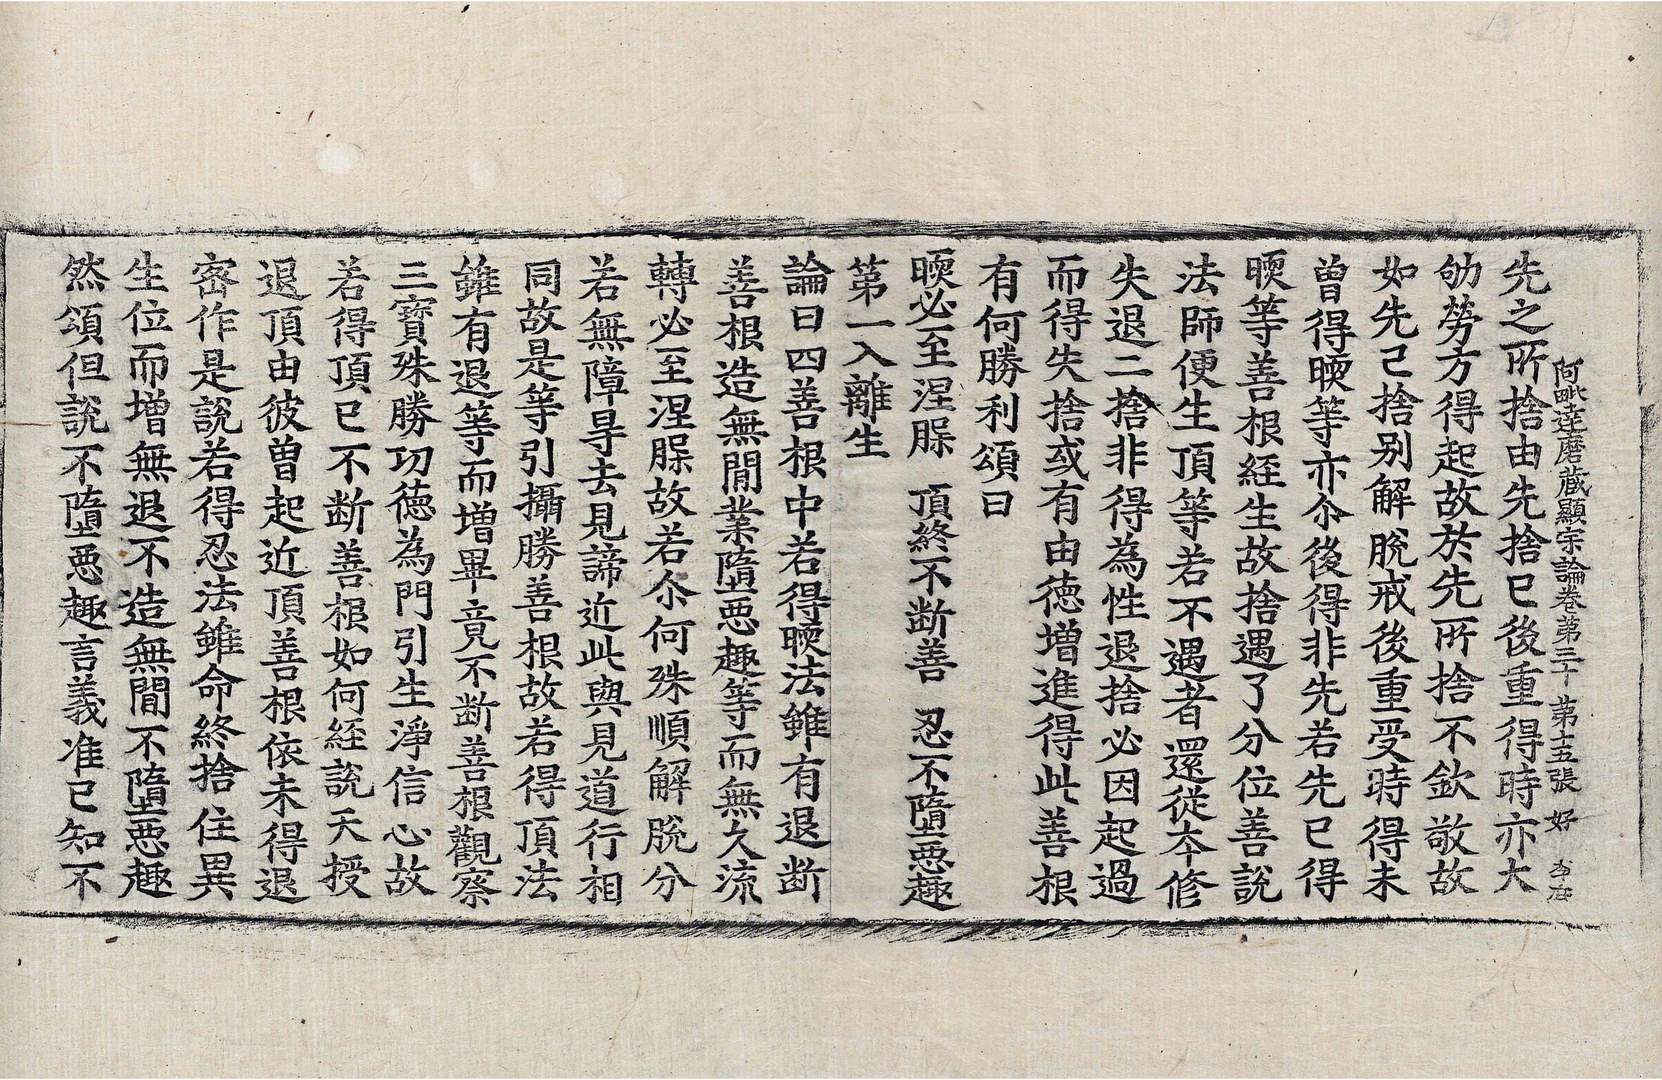 阿毗達磨藏顯宗論卷第三十 第十五張 好
先之所捨由先捨已後重得時亦大
劬勞方得起故於先所捨不欽敬故
如先已捨别解脫戒後重受時得未
曾得暎等亦尒後得非先若先已得
暎等善根經生故捨遇了分位善說
法師便生頂等若不遇者還從夲修
失退二捨非得為性退捨必因起過
而得失捨或有由德增進得此善根
有何勝利頌曰
暎必至涅脲 頂終不断善 忍不墮惡趣
第一入離生
論曰四善根中若得暎法雖有退断
善根造無間業墮惡趣等而無久流
轉必至涅脲故若尒何殊順解脫分
若無障㝵去見諦近此與見道行相
同故是等引攝勝善根故若得頂法
雖有退等而增畢竟不断善根觀察
三寶殊勝功德為門引生淨信心故
若得頂已不断善根如何經說天授
退頂由彼曾起近頂善根依未得退
密作是說若得忍法雖命終捨住異
生位而增無退不造無間不墮惡趣
然頌但說不墮惡趣言義准已知不